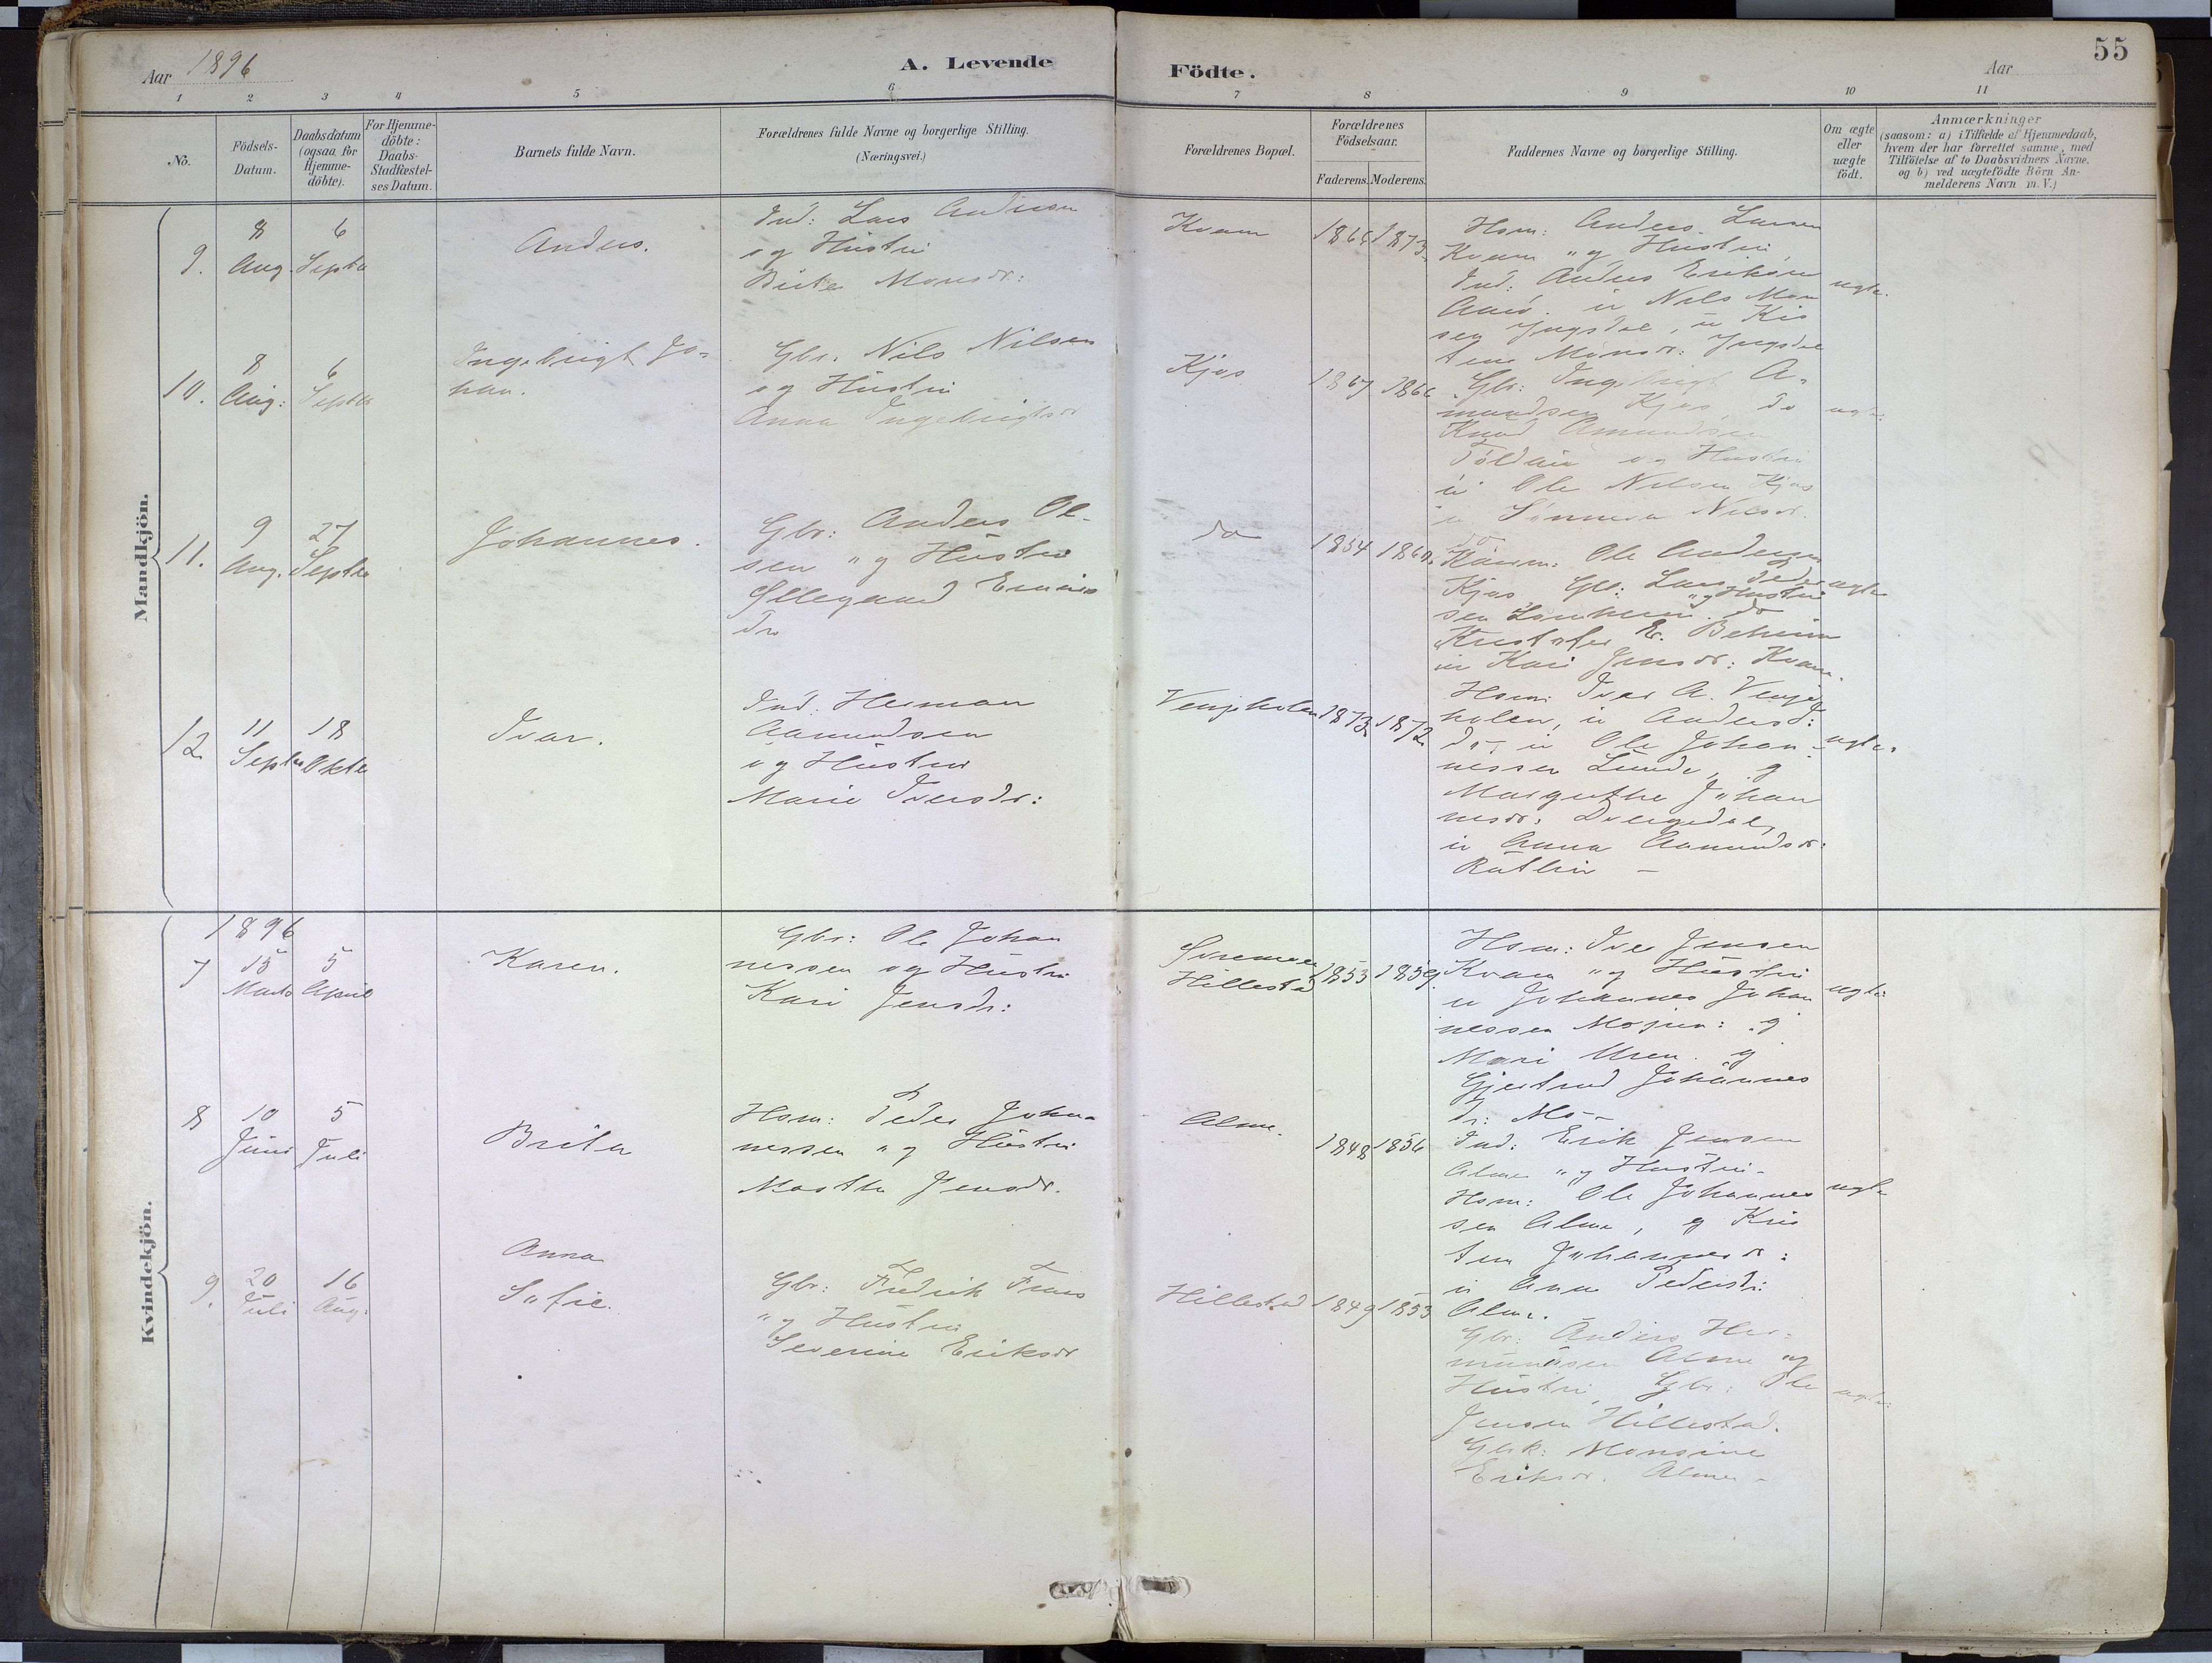 55
Aar 1896
A. Levende
Födte.
Aar
1 2 3 4 5 6 7 8 9 10 11
No.
Födsels-
Datum.
Daabsdatum
(ogsaa for
Hjemme-
döbte).
For Hjemme-
döbte:
Daabs-
Stadfæstel-
ses Datum.
Barnets fulde Navn.
Forældrenes fulde Navne og borgerlige Stilling.
(Næringsvei.)
Forældrenes Bopæl.
Forældrenes
Födselsaar.
Faderens. Moderens.
Faddernes Navne og borgerlige Stilling.
Om ægte
eller
uægte
födt.
Anmærkninger
(saasom: a) i Tilfælde af Hjemmedaab,
hvem der har forrettet samme, med
Tilföielse af to Daabsvidners Navne,
og b) ved uægtefödte Börn An-
melderens Navn m. V.)
Mandkjön.
9.
8
Aug.
6
Septbr
Anders.
Ind: Lars Andersen
og Hustru
Brite Monsdr:
Kvam
1873.
Hsm: Anders Larsen
Kvam og Hustru
Ind: Anders Eriksen
Nils Mon
sen Yngsdal, u Kis
tene Monsdr: Yngsdal
ægte.
10.
8
Aug:
6
Septbr
Ingebrigt Jo-
han.
Gbr: Nils Nilsen
og Hustru
Anna Ingebrigtsdr
Kjos
1867 1866
Gbr: Ingebrigt A-
mundsen Kjos, do
Knud Amundsen
og Hustru
u Ole Nilsen Kjos
u Sünneva Nilsdr.
do
ægte
11.
9
Aug.
27
Septbr
Johannes.
Gbr: Anders Ol-
sen og Hustru
Øllegaard
dr
do
1854
Ole Andersen
Kjos. Gbr: Lars Peder
sen og Hustru
do
Kristofer E. Beheim
u Kari Jensdr: Kvam.
ægte
12
11
Septbr
18
Oktbr
Ivar.
Ind. Herman
Aamundsen
og Hustru
Marie Iversdr:
Vengeholen
1873 1872
Hsm: Ivar A. Venge
holen, u Anders I:
do, u Ole Johan-
nessen Lunde, g
Margrethe Johan
nesdr: Dvergedal,
u Anna Aamundsdr:
Rutlin -
ægte.
Kvindekjön.
1896
7
15
Marts
5
April
Karen.
Gbr: Ole Johan
nessen og Hustru
Kari Jensdr:
Hillestad
1853 1859
Hsm: Iver Jensen
Kvam og Hustru
u Johannes Johan
nessen g
Mari Uren. g
Gjertrud Johannes
dr: Mo -
ægte
8
10
Juni
5
Juli
Brita
Hsm: Peder Johan
nessen og Hustru
Martha Jensdr.
Alme.
1848 1856
Ind: Erik Jensen
Alme og Hustru -
Hsm: Ole Johannes
sen Alme, g Kris
ten Johannesdr:
u Anne Pedersdr:
Alme.
ægte
9.
20
Juli
16
Aug.
Anna
Sofie.
Gbr: Fredrik Friis
og Hustru
Severine Eriksdr
Hillestad
1849 1853
Gbr: Anders Her-
mundsen Alme og
Hustru, Gbr: Ole
Jensen Hillestad.
Gbk: Monsine
Eriksdr. Alme -
ægte